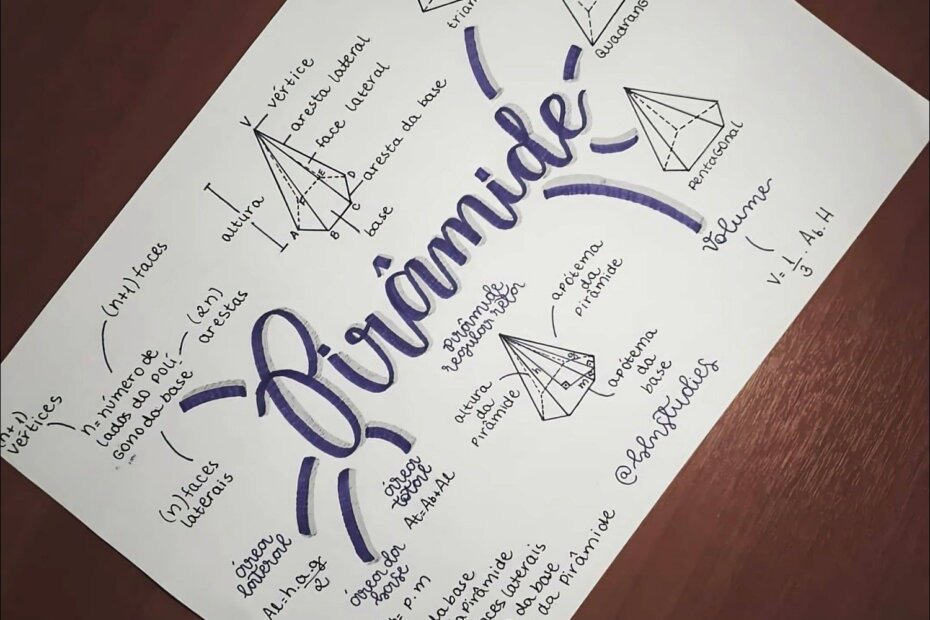 Pirâmide
trian
quadrang
pentagonal
volume
V = 1/3 . Ab . H
V
vértice
aresta lateral
face lateral
aresta da base
base
altura
A
B
C
D
E
F
(n+1) faces
(2n)
arestas
n = número de
lados do polí
gono da base
vértices
(n) faces
laterais
pirâmide
regular retor
apótema
da
pirâmide
altura
da
pirâmide
apótema
da
base
@lslnstudies
área
lateral
Al = n.a.g/2
área da
base
p.m
área
total
At = Ab + Al
da base
pirâmide
faces laterais
da base
da pirâmide